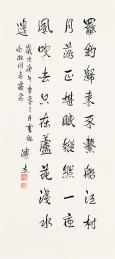 罷釣歸來不繫船江村
月落正堪眠縱然一夜
風吹去只在蘆花淺水
邊
歲次庚午
溥杰